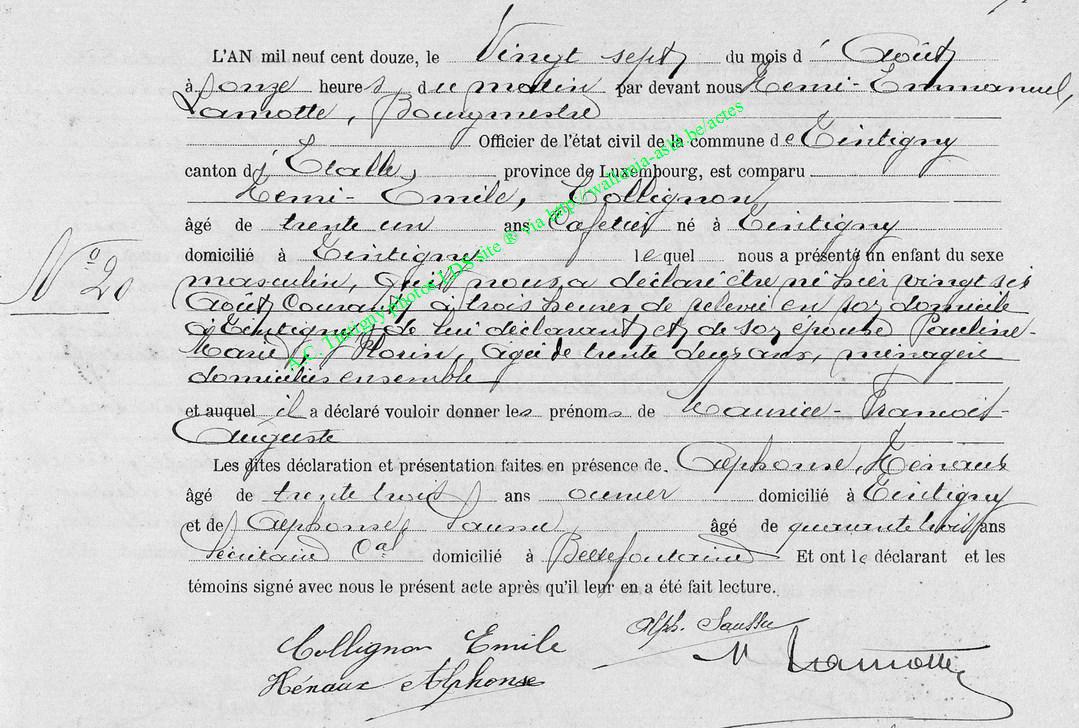 L'AN mil neuf cent douze, le Vingt sept du mois d' Août
à onze heures du matin par devant nous Remi-Emmanuel,
Lamotte, Bourgmestre
Officier de l'état civil de la commune de Tintigny
canton d' Etalle, province de Luxembourg, est comparu
Remi-Emile, Collignon,
âgé de trente un ans Cafetier né à Tintigny
domicilié à Tintigny lequel nous a présenté un enfant du sexe
masculin, qu'il nous a déclaré être né hier vingt six
Août Courant, à trois heures de relevée en son domicile
à Tintigny, de lui déclarant et de son épouse Pauline-
Marie, Florin, âgée de trente deux ans, ménagère
domiciliés ensemble
N° 20
et auquel il a déclaré vouloir donner les prénoms de Maurice-François-
Auguste
Les dites déclaration et présentation faites en présence de Alphonse, Hénaux
âgé de trente trois ans ouvrier domicilié à Tintigny
et de Alphonse, Saussu, âgé de quarante trois ans
Secrétaire Cal domicilié à Bellefontaine Et ont le déclarant et les
témoins signé avec nous le présent acte après qu'il leur en a été fait lecture.
Alph. Saussu
Collignon Emile
Lamotte
Hénaux Alphonse
A.C. Tintigny photos LDS site ® via http://wallonia-asbl.be/actes